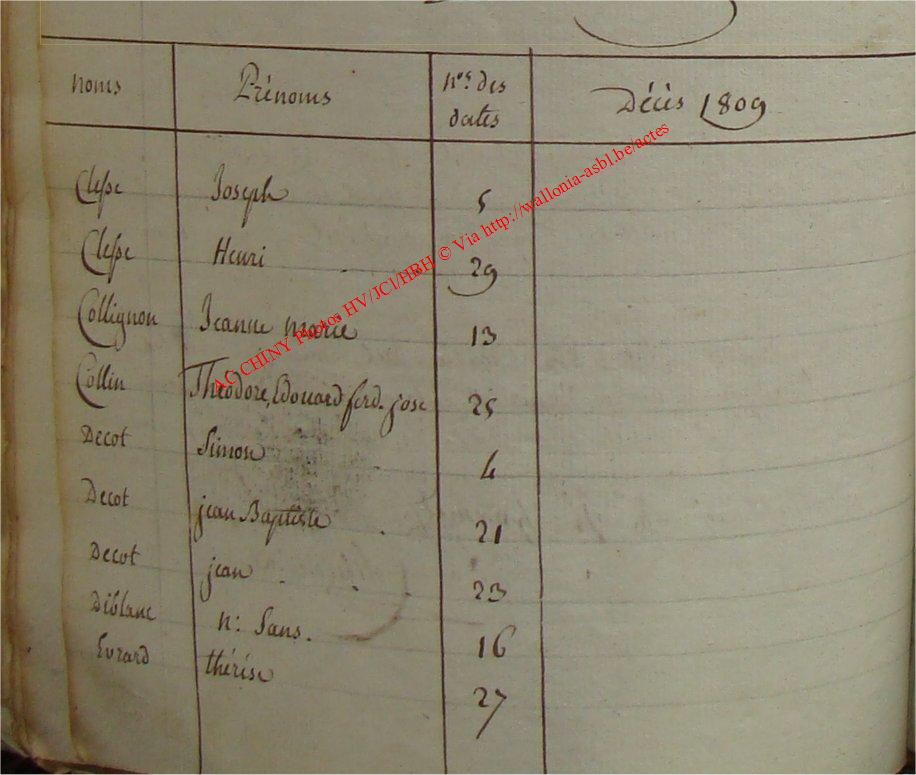 noms Prénoms nos. des dates Décès 1809
Clesse Joseph 5
Clesse Henri 29
Collignon Jeanne marie 13
Collin Théodore, Edouard ferd. jose 25
Decot Simon 4
Decot jean Baptiste 21
Decot jean 23
Diblanc n: Sans. 16
Evrard thérèse 27
AC CHINY Photos HV/JCl/HBH © Via http://wallonia-asbl.be/actes